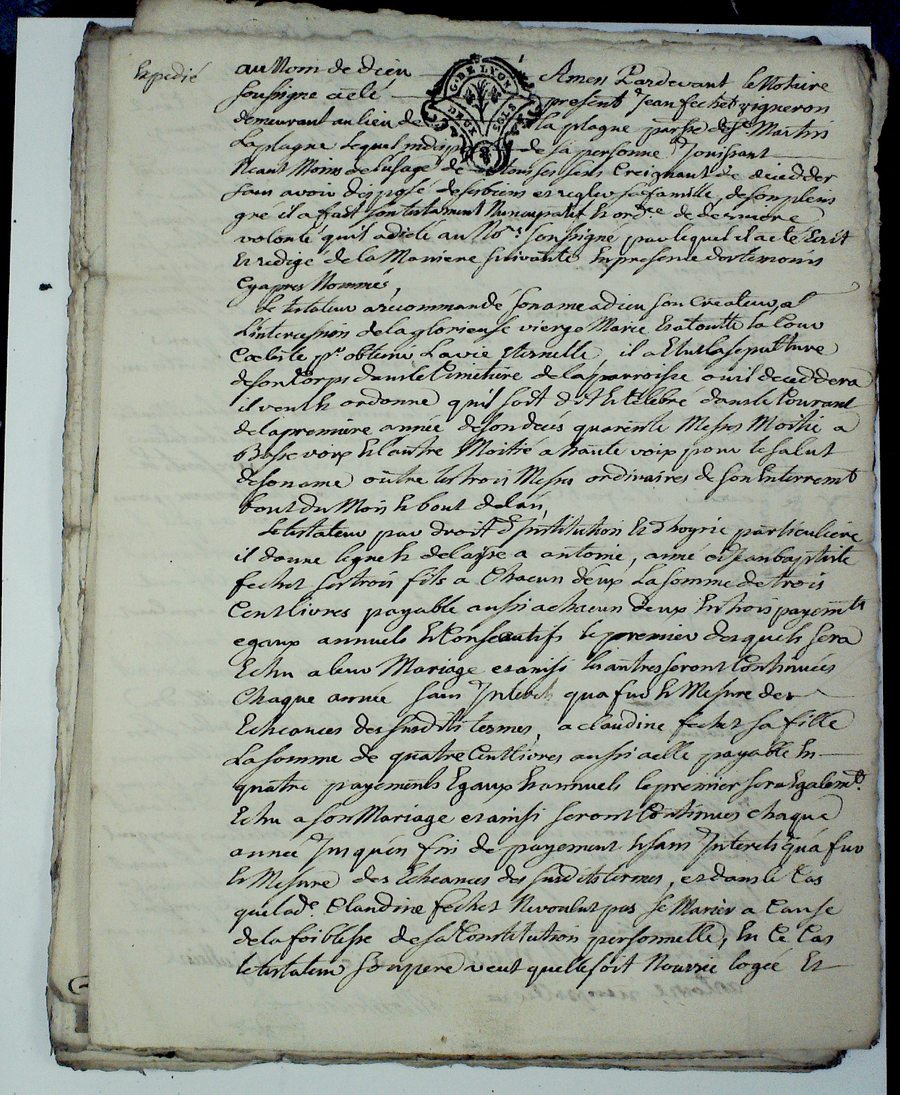 Expedié
au Nom de dieu Amen Pardevant le Notaire
soussigné a eté present Jean fechet vigneron
demeurant au lieu de la plagne parsse de St Martin
Laplagne lequel indisposé de sa personne Jouissant
Neant Moins de l'usage de tous ses sens Creignant de decedder
sans avoir disposé de ses biens et regler sa famille, de son plein
gré il a fait son testament Nuncupatif et ordre de derniere
volonté qu'il a dicté au Nore soussigné, par lequel il a eté Ecrit
Et redigé de la Maniere suivante En presence des temoins
Cy apres Nommés,
Le testateur a recommandé son ame a dieu son Createur, a
L'intercession de la glorieuse vierge Marie Et a toutte la Cour
Celeste pr obtenir La vie Eternelle, il a Elu la sepulture
de son Corps dans le Cimetiere de la parroisse ou il deceddera
il veut & ordonne qu'il soit dit Et Celebré dans le Courant
de la premiere année de son decés quarente Messes Moitié a
Basse voix Et l'autre Moitié a haute voix pour le salut
de son ame outre les trois Messes ordinaires de son Enterremt
bout du Mois & bout de l'an,
Le testateur par droit d'Institution Et d'hoyrie particuliere
il donne legue & delaisse a antoine, aimé et Jean baptiste
fechet ses trois fils a Chacun d'eux La somme de trois
Cent livres payable aussi a chacun d'eux En trois payemts
egaux annuels & Consecutifs le premier desquels sera
Echu a leur Mariage et ainsi les autres seront Continués
Chaque année sans Interets qu'a fur & Mesure des
Echeances des susdits termes, a claudine fechet sa fille
La somme de quatre Cent livres aussi a elle payable En
quatre payements Egaux & annuels le premier sera Egalemt
Echu a son Mariage et ainsi seront Continués chaque
année Jusqu'en fin de payement & sans Interets qu'a fur
& Mesure des Echeances des susdits termes, et dans le Cas
que lade Claudine fechet Ne voulut pas se Marier a Cause
de la foiblesse de sa Constitution personnelle, En ce Cas
le testateur son pere veut quelle soit Nourrie logée Et
G. DE LYON
DEUX SOLS